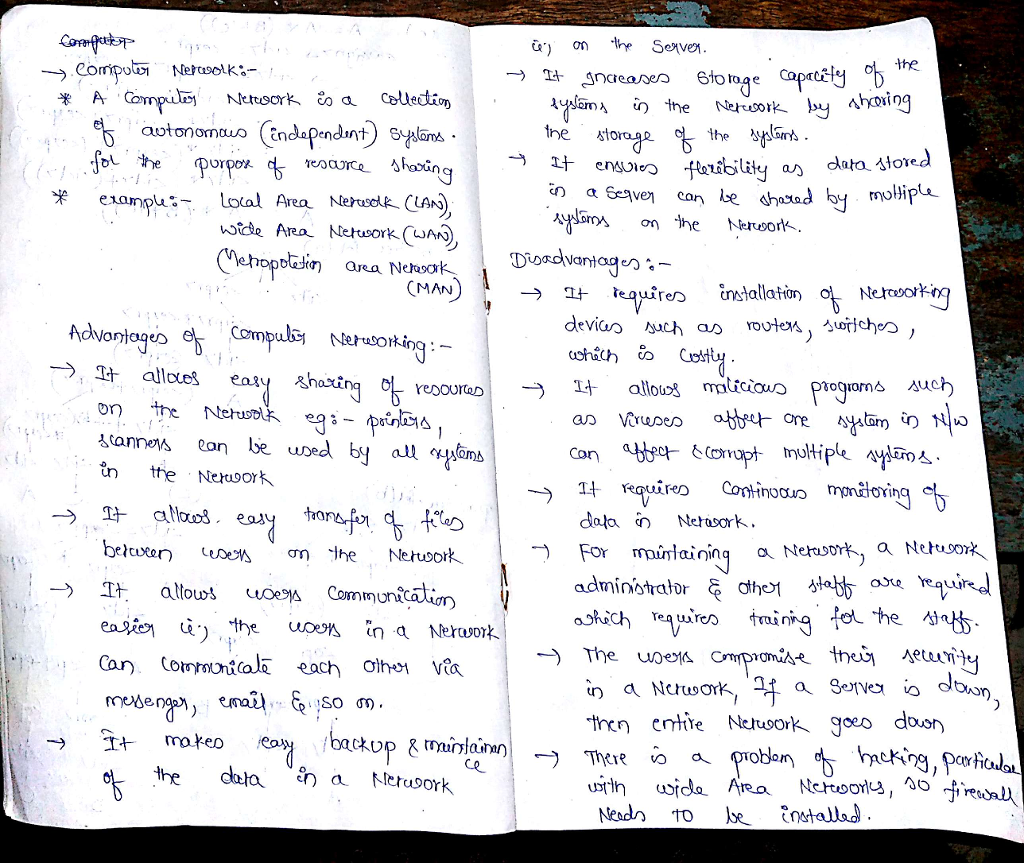 Computer
→ Computer Network:-
* A Computer Network is a collection
of autonomous (independent) systems.
for the purpose of resource sharing
* example:- Local Area Network (LAN),
Wide Area Network (WAN),
(Metropoletin area Network
(MAN)
Advantages of Computer Networking:-
→ It allows easy sharing of resources
on the Network eg:- printers,
scanners can be used by all systems
in the Network
→ It allows. easy transfer of files
between users on the Network
→ It allows users communication
easier ie; the users in a Network
can communicate each other via
messenger, email & so on.
→ It makes easy backup & maintainan
ce
of the data in a Network
ie; on the Server.
→ It Increases Storage Capacity of the
systems in the Network by sharing
the storage of the systems.
→ It ensures flexibility as data stored
in a Server can be shared by multiple
systems on the Network.
Disadvantages:-
→ It requires installation of Networking
devices such as routers, switches,
which is Costly.
→ It allows malicious programs such
as viruses affect one system in N/w
can affect & corrupt multiple systems.
→ It requires Continuous monitoring of
data in Network.
→ For maintaining a Network, a Network
administrator & other staff are required
which requires training for the staff.
→ The users compromise their security
in a Network, If a Server is down,
then entire Network goes down
→ There is a problem of hacking, particular
with wide Area Networks, so firewall
Needs to be installed.